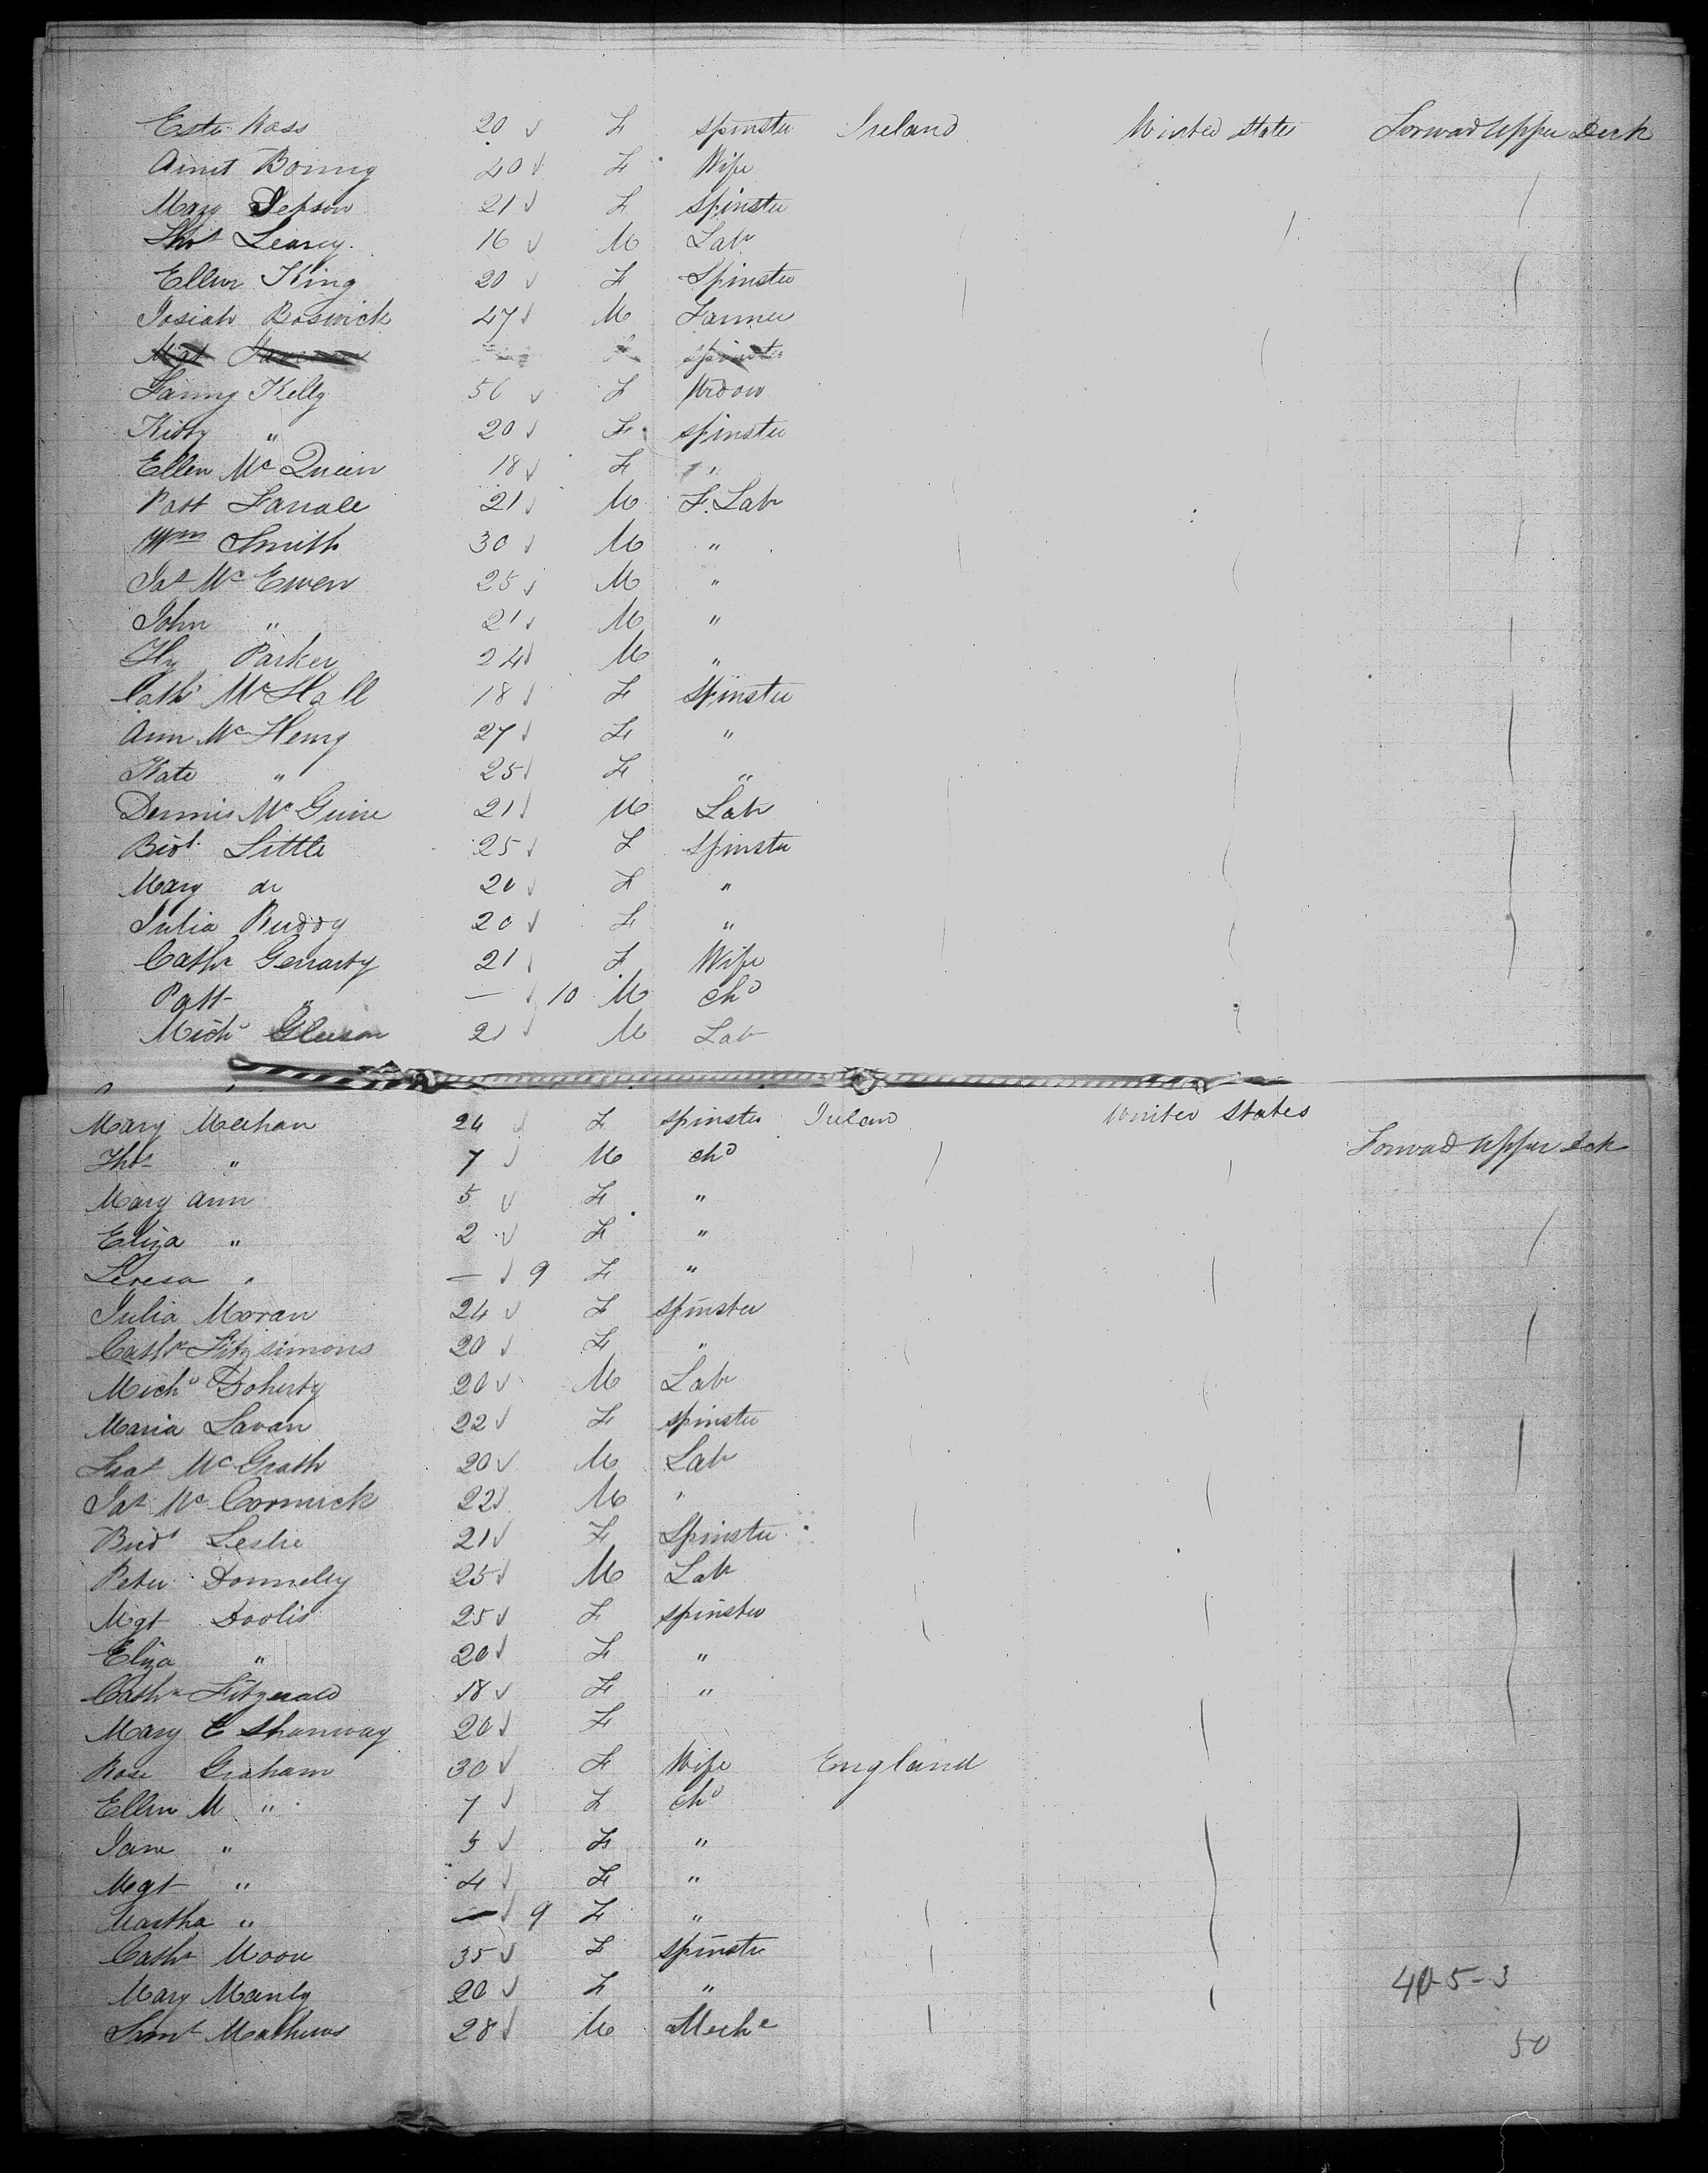 Estr Kass 20 F spinster Ireland United States Forward Upper Deck
Annt Bonny 40 F Wife
Mary Jepson 21 F Spinster
Thos Leavy 16 M Lab
Ellen King 20 F Spinster
Josiah Boswick 47 M Farmer
Mgt spinster
Fanny Kelly 56 F Widow
Kitty " 20 F spinster
Ellen McQueen 18 F "
Patt Farrale 21 M F. Lab
Wm Smith 30 M "
Jas McEwen 25 M "
John " 21 M "
Hy Parker 24 M "
Cath McHall 18 F Spinster
Ann McHenry 27 F "
Kate " 25 F "
Dennis McGuire 21 M Lab
Bidt Little 25 F Spinster
Mary do 20 F "
Julia Ruddy 20 F "
Cathe Gerraty 21 F Wife
Patt " — 10 M chd
Michl Gleeson 21 M Lab
Mary Meehan 24 F spinster Ireland United States
Thos " 7 M chd Forward Upper Deck
Mary Ann 5 F "
Eliza " 2 F "
Teresa " — 9 F "
Julia Moran 24 F spinster
Cathe Fitzsimons 20 F "
Michl Doherty 20 M Lab
Maria Lavan 22 F spinster
Fras McGrath 20 M Lab
Jas McCormick 22 M "
Bridt Leslie 21 F Spinster
Peter Donnelly 25 M Lab
Mgt Doolis 25 F spinster
Eliza " 20 F "
Cathe Fitzgerald 18 F "
Mary E Shanway 20 F
Rose Graham 30 F Wife England
Ellen M " 7 F chd
Jane " 5 F "
Mgt " 4 F "
Martha " — 9 F "
Cathe Moore 35 F spinster
Mary Manly 20 F " 40-5-3
Saml Mathews 28 M Meche
50